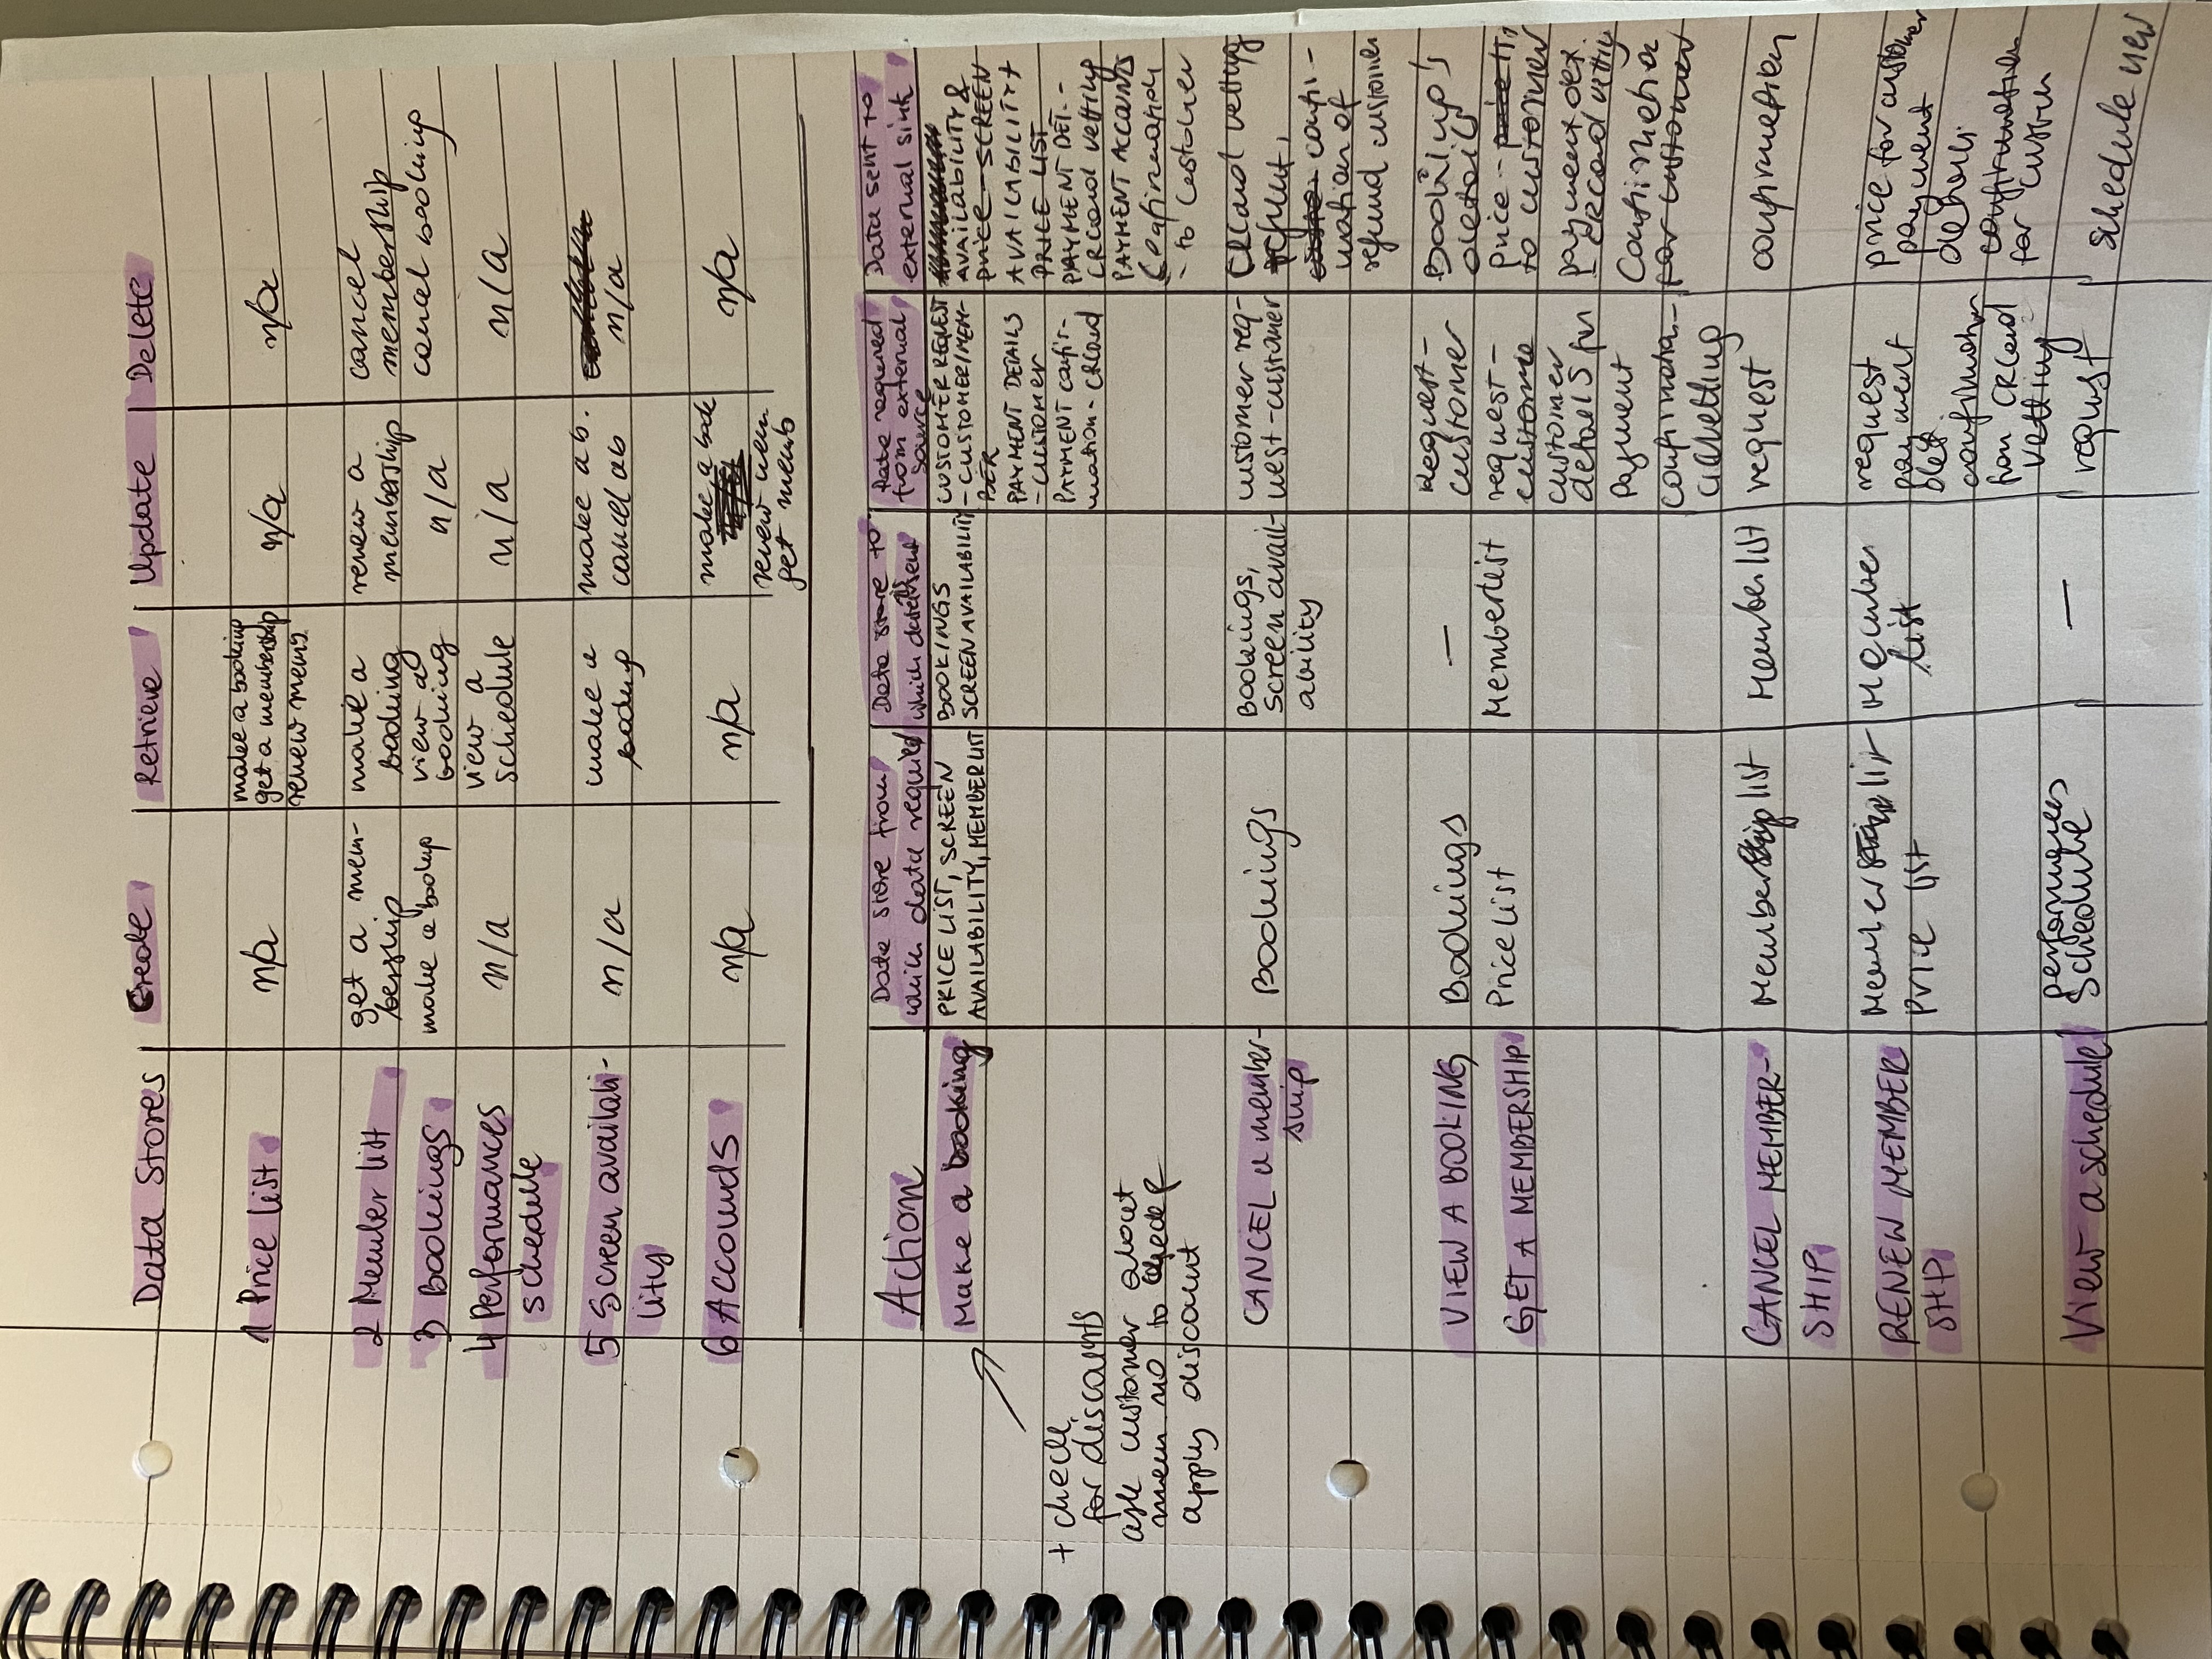 Data Stores | Create | Retrieve | Update | Delete
1 Price list | n/a | make a booking get a membership renew mem. | n/a | n/a
2 Member list | get a mem-bership | make a booking | renew a membership | cancel membership
3 Bookings | make a bookup | view a booking | n/a | cancel booking
4 Performances schedule | n/a | view a schedule | n/a | n/a
5 Screen availabi-lity | n/a | make a booking | make a b. cancel a b | n/a
6 Accounts | n/a | n/a | make a book renew mem. get memb | n/a
Action | Data store from which data required | Data store to which data is sent | Data required from external source | Data sent to external sink
Make a booking | PRICE LIST, SCREEN AVAILABILITY, MEMBER LIST | BOOKINGS SCREEN AVAILABILITY | CUSTOMER REQEST - CUSTOMER/MEM-BER PAYMENT DETAILS - CUSTOMER PAYMENT confir-mation - CRCard | AVAILABILITY & price - SCREEN AVAILABILITY + PRICE LIST PAYMENT DET. - CRCard vetting PAYMENT ACCOUNTS Confirmation - to customer
+ check
for discounts
ask customer about
mem no to
apply discount
CANCEL a member-ship | Bookings | Bookings, screen avail-ability | customer req-uest - customer | CRCard vetting confir-mation of refund customer
VIEW A BOOKING | Bookings | — | Request - customer | Booking's details
GET A MEMBERSHIP | Price list | Member list | request - customer customer details for payment confirmation - vetting | price - price list to customer payment det. - CRCard vetting Confirmation for customer
CANCEL MEMBER-SHIP | Member list | Member list | request | confirmation
RENEW MEMBER SHP | Member list Price list | Member list | request payment det. confirmation from CRCard vetting | price for customer payment details confirmation for custom
View a schedule | performances Schedule | — | request | Schedule